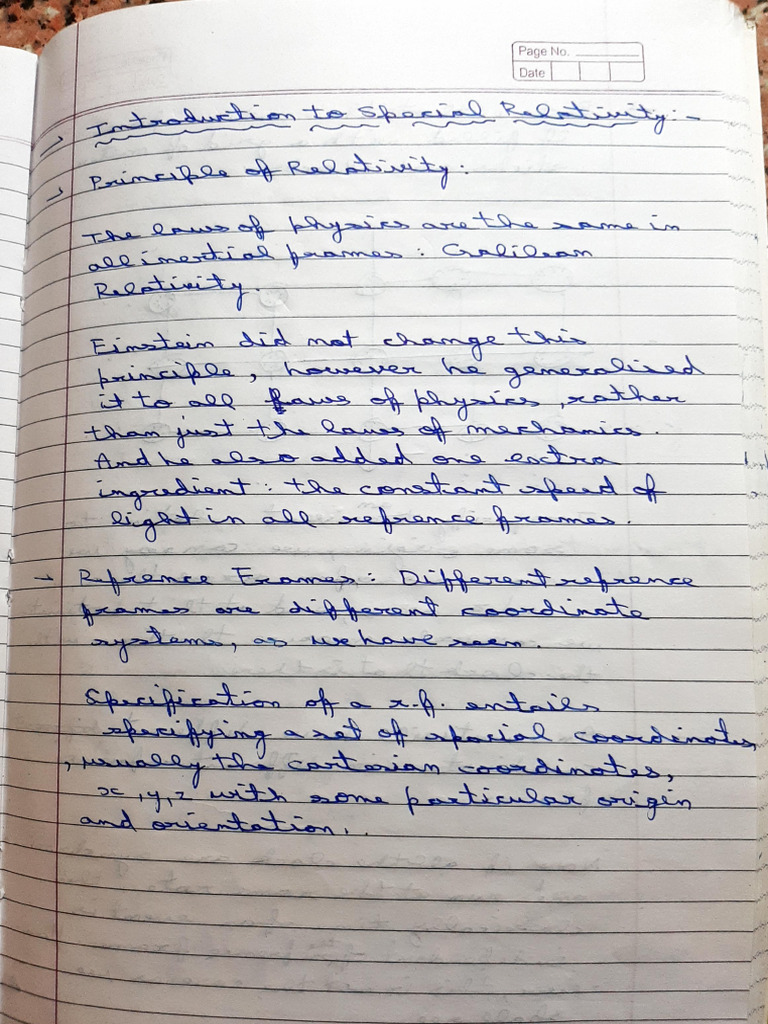 Page No.
Date
→ Introduction to Special Relativity:-
→ Principle of Relativity:
The laws of physics are the same in
all inertial frames: Galilean
Relativity.
Einstein did not change this
principle, however he generalised
it to all laws of physics, rather
than just the laws of mechanics.
And he also added one extra
ingredient: the constant speed of
light in all refrence frames.
→ Rfrence Frames: Different refrence
frames are different coordinate
systems, as we have seen.
Specification of a r.f. entails
specifying a set of spacial coordinates,
, usually the cartesian coordinates,
x, y, z with some particular origin
and orientation..